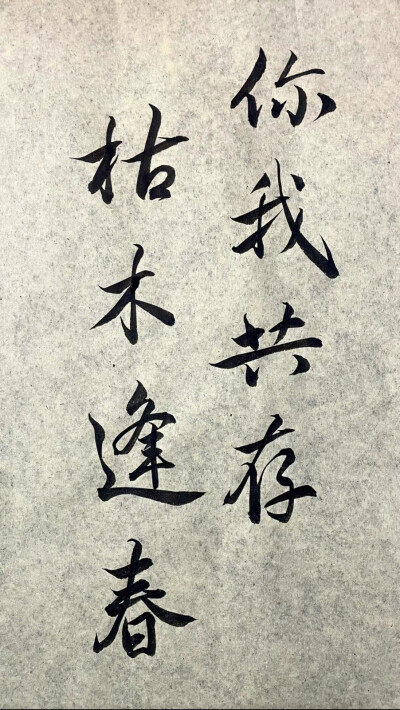 你我共存
枯木逢春